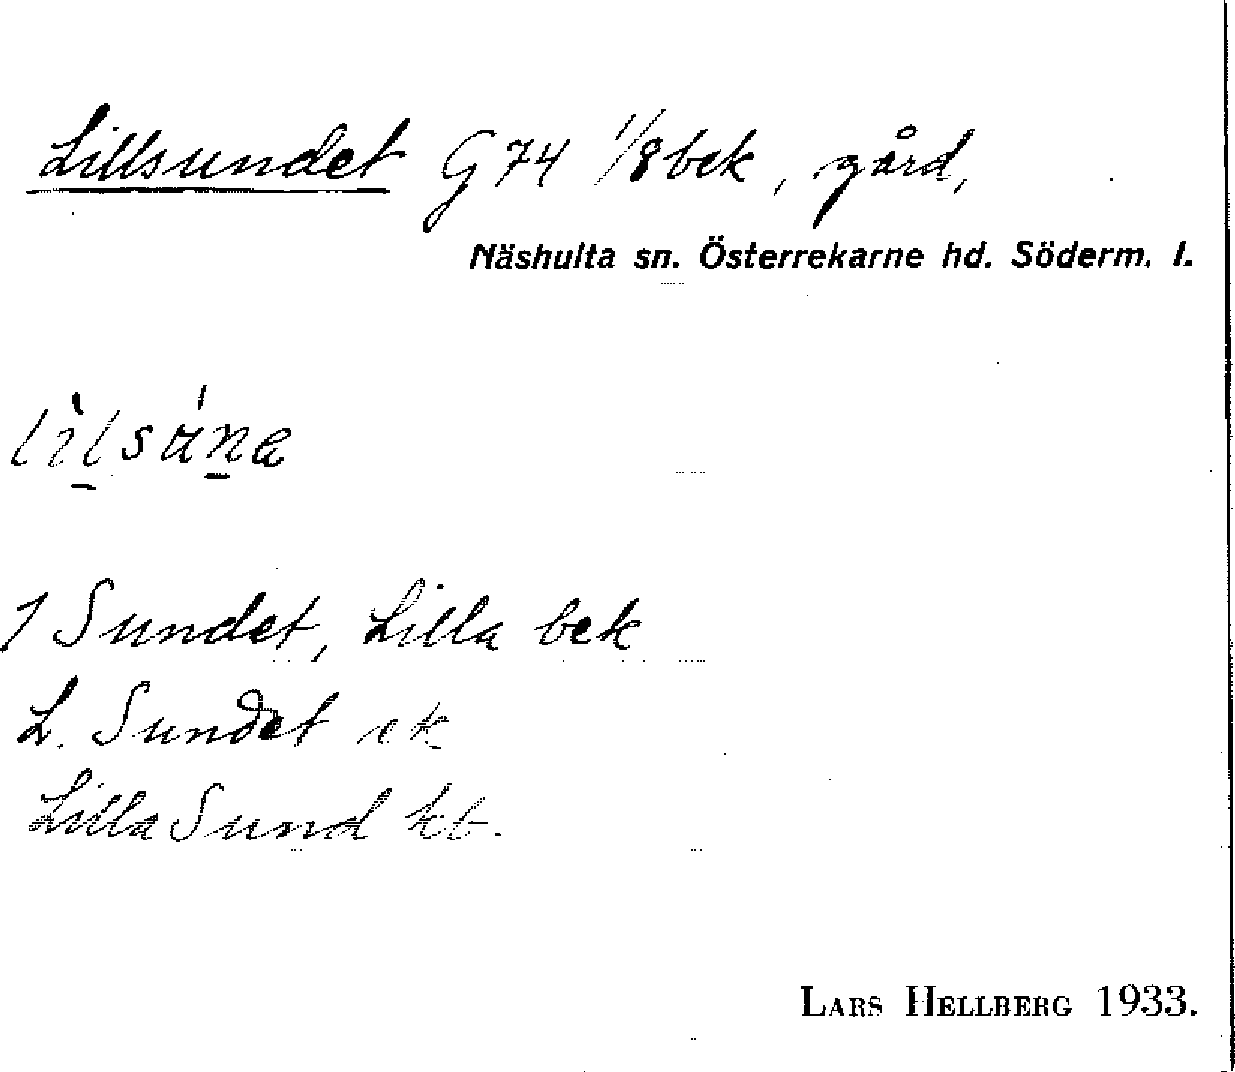 Lillsundet G 74 1/8 bek, gård,
Näshulta sn. Österrekarne hd. Söderm. l.
1 Sundet, Lilla bek
L. Sundet ek
Lilla Sund kb.
LARS HELLBERG 1933.